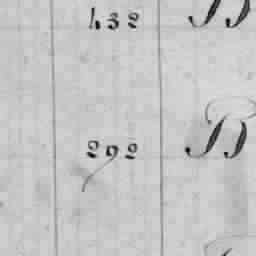 432 B
292 B